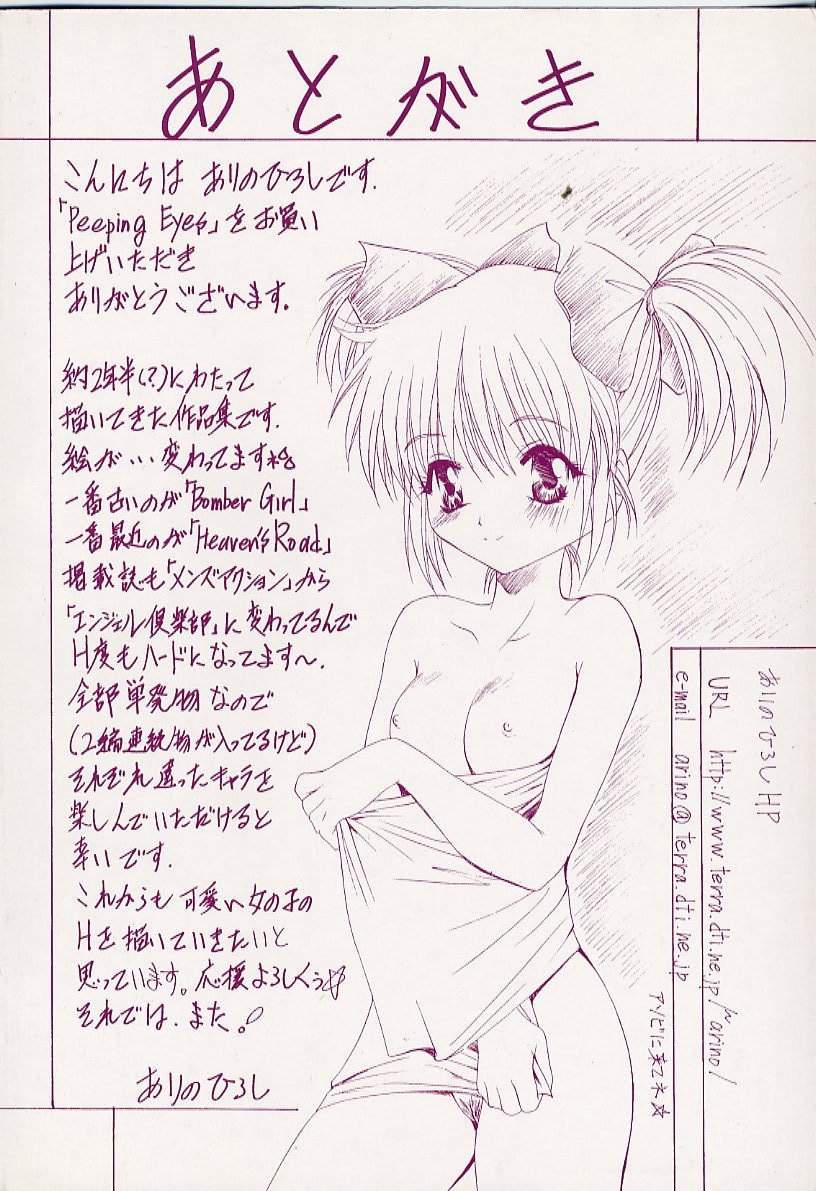 あとがき
こんにちは ありのひろしです.
「Peeping Eyes」をお買い
上げいただき
ありがとうございます.
約2年半(?)にわたって
描いてきた作品集です.
絵が…変わってますね
一番古いのが「Bomber Girl」
一番最近のが「Heaven's Road」
掲載誌も「メンズアクション」から
「エンジェル倶楽部」に変わってるんで
H度もハードになってます〜.
全部単発物なので
(2編連続物が入ってるけど)
それぞれ違ったキャラを
楽しんでいただけると
幸いです.
これからも可愛い女の子の
Hを描いていきたいと
思っています。応援よろしくぅ
それでは、また。
ありのひろし
ありのひろしHP
URL http://www.terra.dti.ne.jp/~arino/
e-mail arino@terra.dti.ne.jp
アソビに来てネ☆